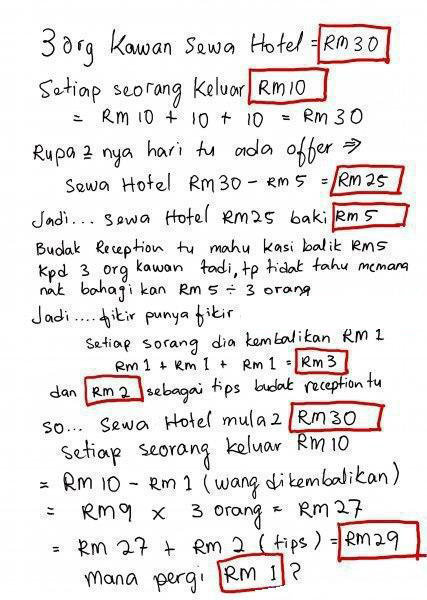 3 org Kawan Sewa Hotel = RM 30
Setiap seorang keluar RM 10
= RM 10 + 10 + 10 = RM 30
Rupa2 nya hari tu ada offer ⇒
Sewa Hotel RM30 - RM 5 = RM 25
Jadi... sewa Hotel RM25 baki RM 5
Budak Reception tu mahu kasi balik RM5
Kpd 3 org kawan tadi, tp tidak tahu memana
nak bahagi kan RM 5 ÷ 3 orang
Jadi .... fikir punya fikir
Setiap sorang dia kembalikan RM 1
RM 1 + RM 1 + RM 1 = RM 3
dan RM 2 sebagai tips budak reception tu
so... Sewa Hotel mula2 RM30
Setiap seorang keluar RM 10
= RM 10 - RM 1 (wang dikembalikan)
= RM9 x 3 orang = RM 27
= RM 27 + RM 2 (tips) = RM29
Mana pergi RM 1 ?